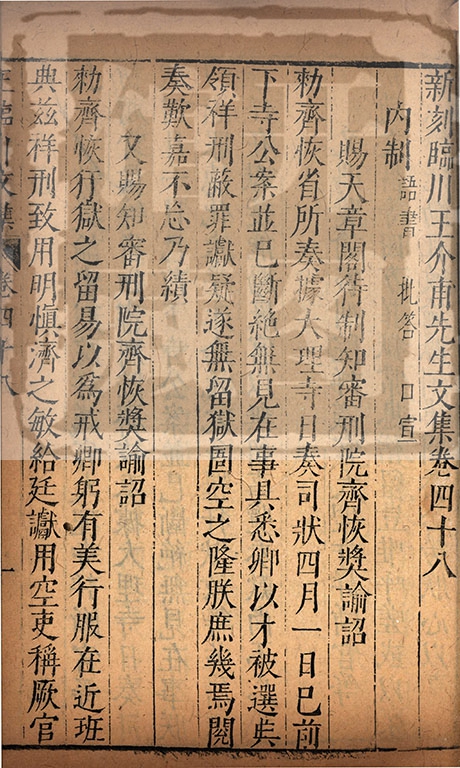 新刻臨川王介甫先生文集卷四十八
內制 詔書 批答 口宣
賜天章閣待制知審刑院齊恢獎諭詔
勑齊恢省所奏據大理寺日奏司狀四月一日已前
下寺公案並已斷絶無見在事具悉卿以才被選典
領祥刑蔽罪讞疑遂無留獄圄空之隆朕庶幾焉閱
奏歎嘉不忘乃績
又賜知審刑院齊恢獎諭詔
勑齊恢行獄之留易以為戒卿躬有美行服在近班
典茲祥刑致用明慎濟之敏給廷讞用空吏稱厥官
王臨川文集 卷四十八 一